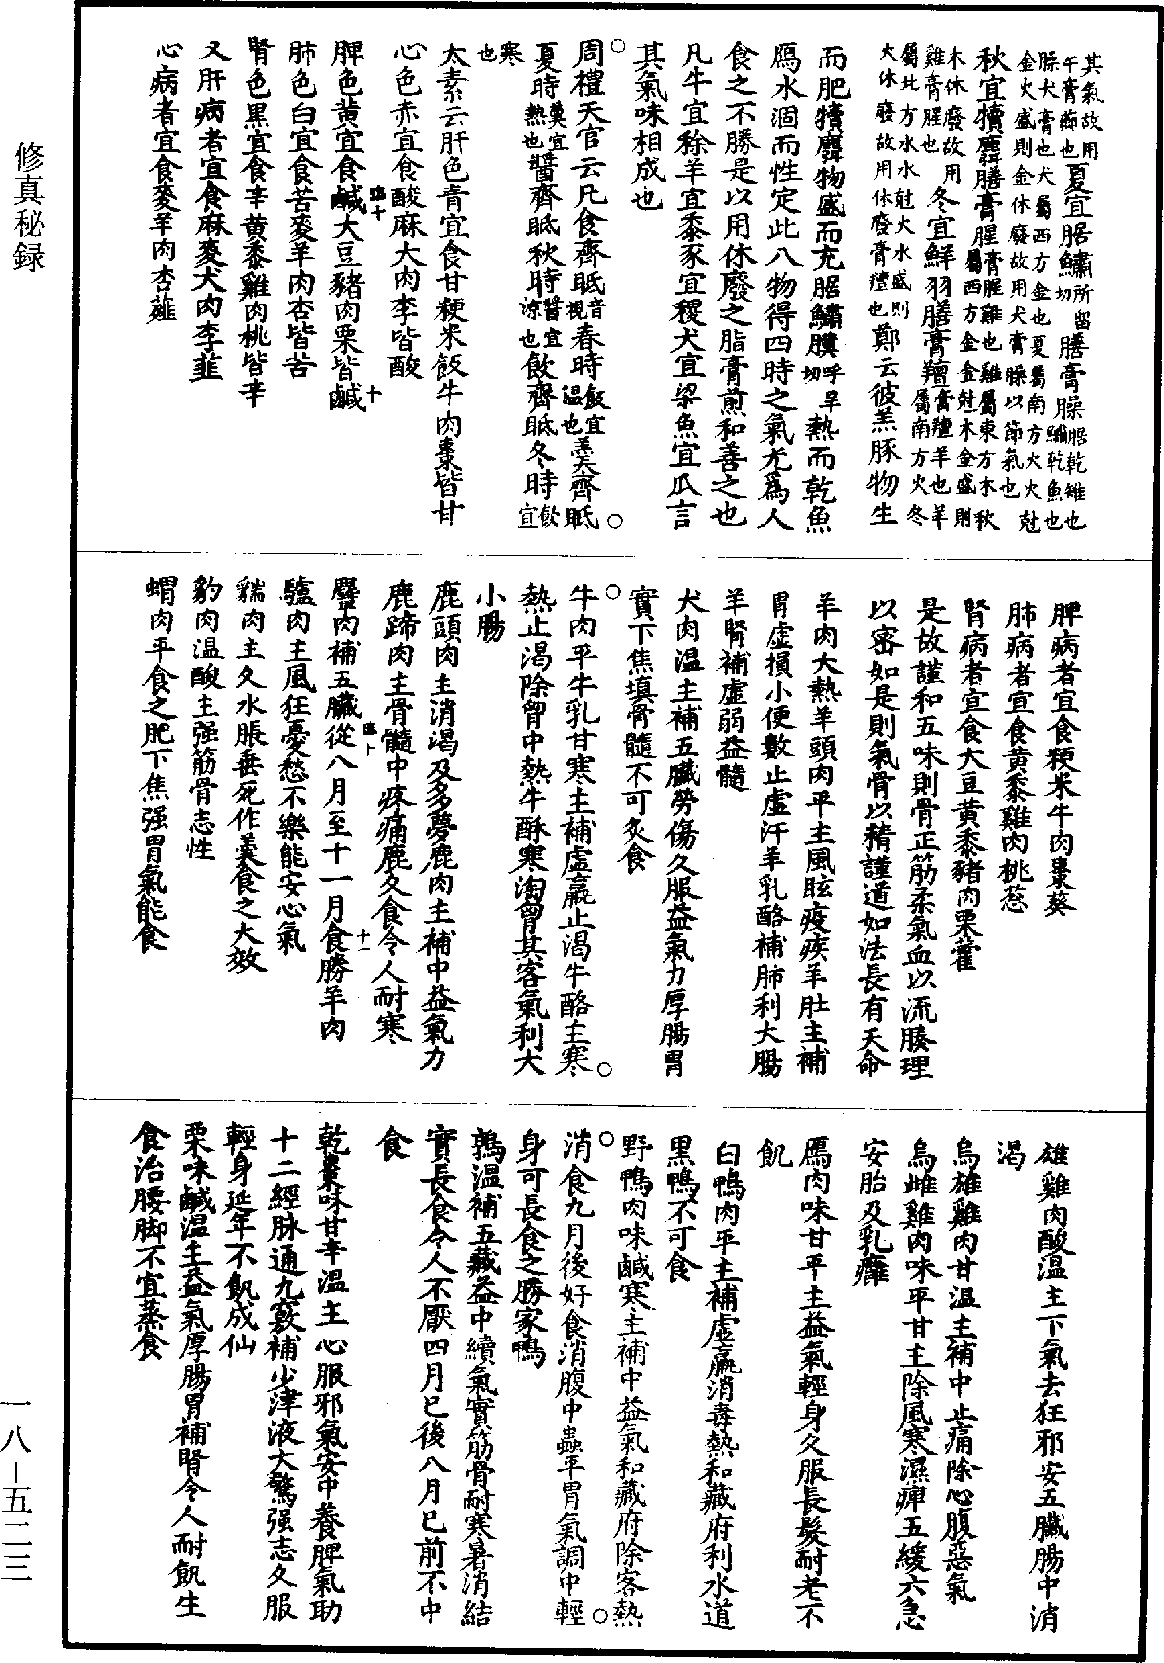 修真秘録
其氣故用
午膏薌也夏宜腒鱐所留切膳膏臊腒乾雉也鱐乾魚也
臊犬膏也犬屬西方金也夏屬南方火火尅
金火盛則金休廢故用犬膏臊以節氣也
秋宜犢麛膳膏腥膏腥雞也雞屬東方木秋屬西方金金尅木金盛則
木休廢故用雞膏腥也冬宜鮮羽膳膏羶膏羶羊也羊屬南方火冬
屬北方水水尅火水盛則
火休廢故用休廢膏羶也鄭云彼羔豚物生
而肥犢麛物盛而充腒鱐膭呼旱切熱而乾魚
鴈水涸而性定此八物得四時之氣尤爲人
食之不勝是以用休廢之脂膏煎和善之也
凡牛宜稌羊宜黍豕宜稷犬宜粱魚宜瓜言
其氣味相成也
周禮天官云凡食齊眡音視春時飯宜溫也羹齊眡
夏時羹宜熱也醬齊眡秋時醬宜涼也飲齊眡冬時飲宜
寒也
太素云肝色青宜食甘粳米飯牛肉棗皆甘
心色赤宜食酸麻犬肉李皆酸
脾色黄宜食鹹大豆豬肉栗皆鹹
肺色白宜食苦麥羊肉杏皆苦
腎色黑宜食辛黄黍雞肉桃皆辛
又肝病者宜食麻麥犬肉李韮
心病者宜食麥羊肉杏薤
脾病者宜食粳米牛肉棗葵
肺病者宜食黄黍雞肉桃葱
腎病者宜食大豆黄黍豬肉栗藿
是故謹和五味則骨正筋柔氣血以流腠理
以密如是則氣骨以精謹道如法長有天命
羊肉大熱羊頭肉平主風眩疫疾羊肚主補
胃虛損小便數止虛汗羊乳酪補肺利大腸
羊腎補虛弱益髓
犬肉温主補五臟勞傷久服益氣力厚腸胃
實下焦填骨髓不可炙食
牛肉平牛乳甘寒主補虛羸止渴牛酪主寒
熱止渴除胷中熱牛酥寒淘胷其客氣利大
小腸
鹿頭肉主消渴及多夢鹿肉主補中益氣力
鹿蹄肉主骨髓中疼痛鹿久食令人耐寒
麞肉補五臟從八月至十一月食勝羊肉
驢肉主風狂憂愁不樂能安心氣
貒肉主久水脹垂死作羹食之大效
豹肉温酸主强筋骨志性
蝟肉平食之肥下焦强胃氣能食
雄雞肉酸温主下氣去狂邪安五臟腸中消
渴
烏雄雞肉甘温主補中止痛除心腹惡氣
烏雌雞肉味平甘主除風寒濕痺五緩六急
安胎及乳癰
鴈肉味甘平主益氣輕身久服長髮耐老不
飢
白鴨肉平主補虛羸消毒熱和藏府利水道
黒鴨不可食
野鴨肉味鹹寒主補中益氣和藏府除客熱
消食九月後好食消腹中蟲平胃氣調中輕
身可長食之勝家鴨
鶉温補五藏益中續氣實筋骨耐寒暑消結
實長食令人不厭四月已後八月已前不中
食
乾棗味甘辛温主心服邪氣安中養脾氣助
十二經脉通九竅補少津液大驚强志久服
輕身延年不飢成仙
栗味鹹温主益氣厚腸胃補腎令人耐飢生
食治腰脚不宜蒸食
一八—五二三